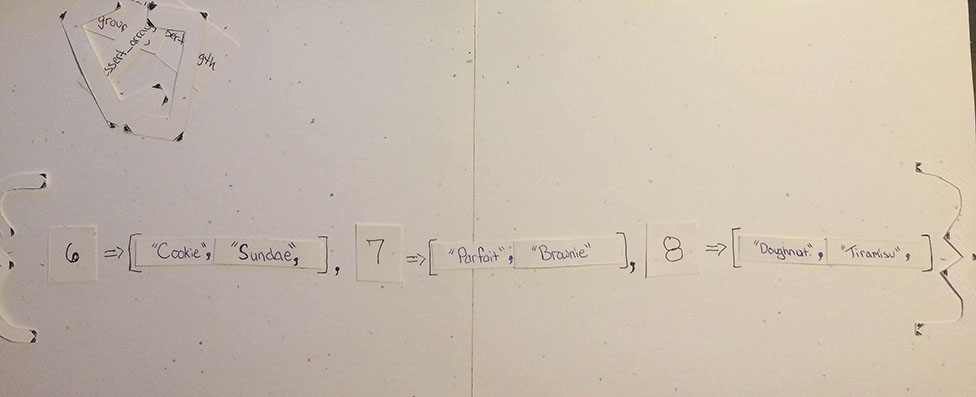 group
ssert_array
sert
gth
{ 6 => ["Cookie", "Sundae",], 7 => ["Parfait", "Brownie"], 8 => ["Doughnut", "Tiramisu",] }